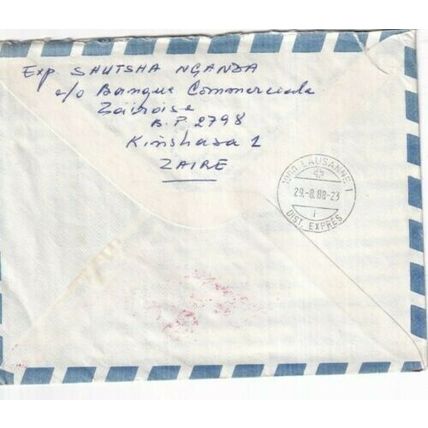 Exp SHUTSHA NGANDA
c/o Banque Commerciale
Zaïroise
B.P. 2798
Kinshasa 1
ZAIRE
1000 LAUSANNE 1
29.-8.88-23
1
DIST. EXPRES